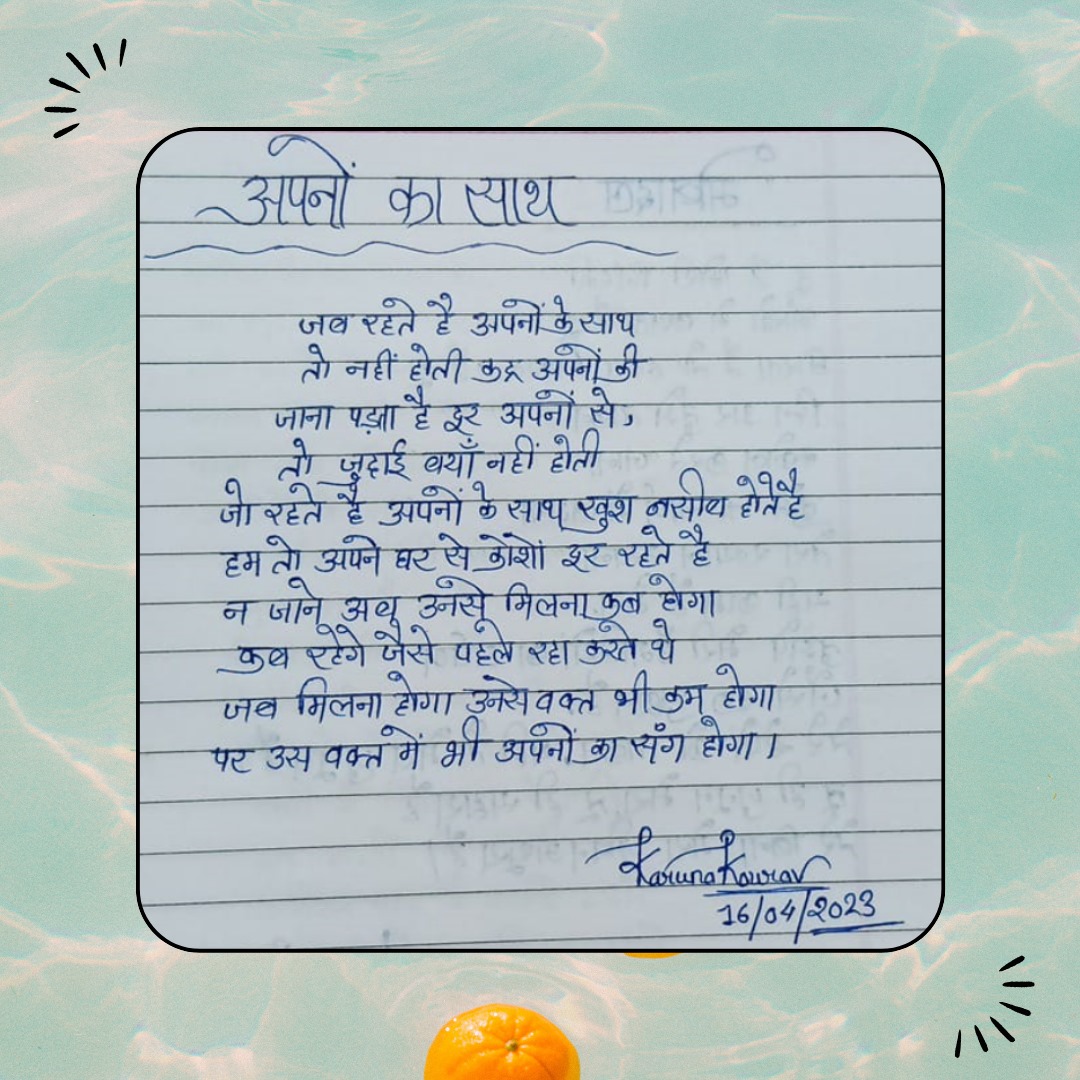 अपनों का साथ
जब रहते है अपनों के साथ
तो नहीं होती कद्र अपनों की
जाना पड़ता है दूर अपनों से,
तो जुदाई बयाँ नहीं होती
जो रहते है अपनों के साथ खुश नसीब होते है
हम तो अपने घर से कोशों दूर रहते है
न जाने अब उनसे मिलना कब होगा
कब रहेंगे जैसे पहले रहा करते थे
जब मिलना होगा उनसे वक्त भी कम होगा
पर उस वक्त में भी अपनों का संग होगा।
Karuna Kourav
16/04/2023